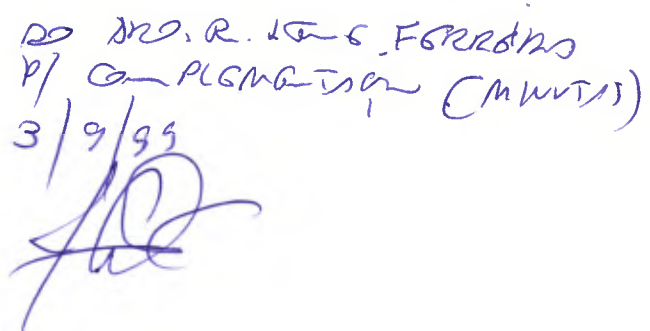 AO ARQ. R. FERREIRA
P/ COMPLEMENTAÇÃO (MINUTAS)
3/9/99